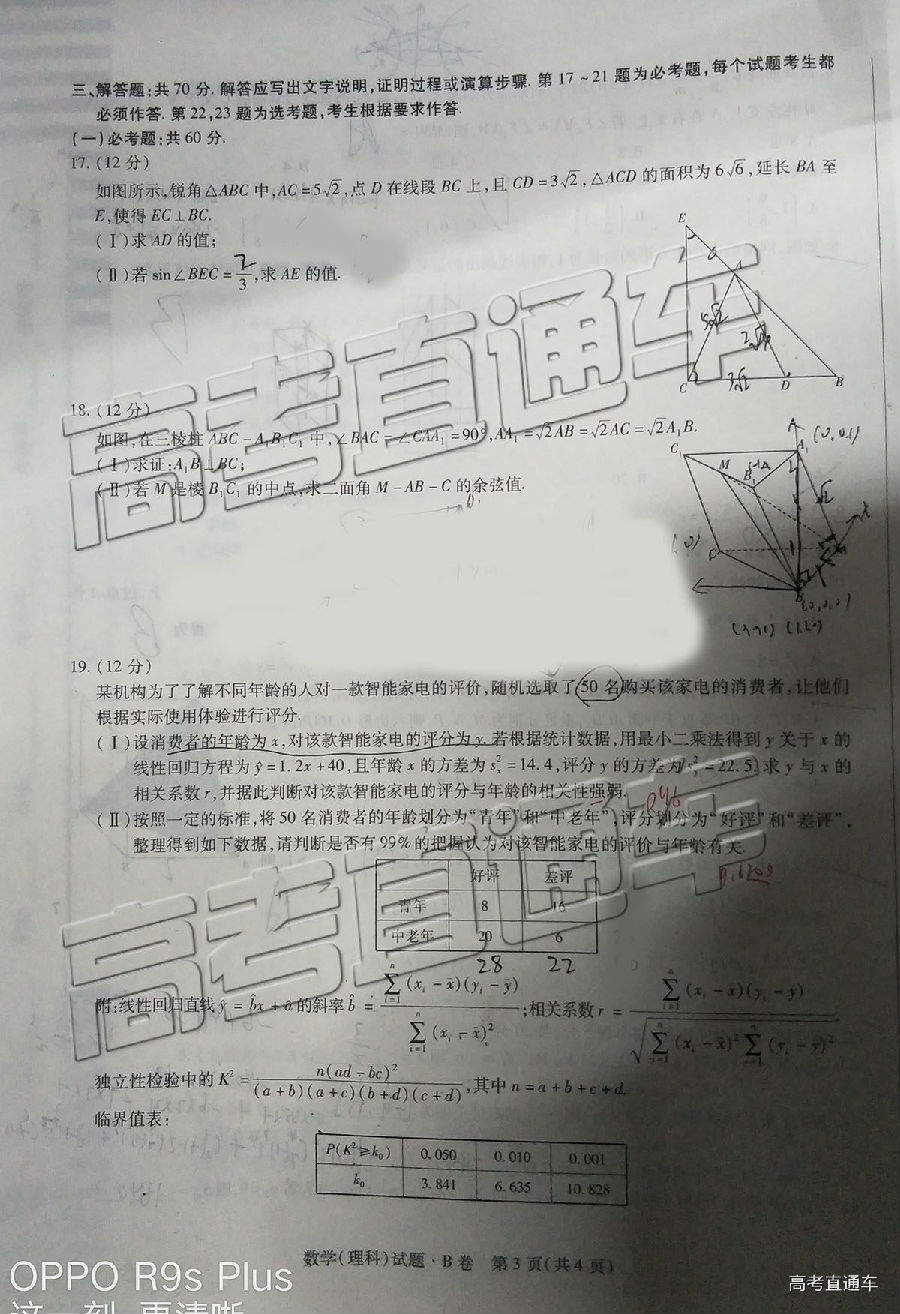 三、解答题:共70分.解答应写出文字说明,证明过程或演算步骤.第17~21题为必考题,每个试题考生都
必须作答.第22,23题为选考题,考生根据要求作答.
(一)必考题:共60分.
17.(12分)
如图所示,锐角△ABC中,AC=5√2,点D在线段BC上,且CD=3√2,△ACD的面积为6√6,延长BA至
E,使得EC⊥BC.
(Ⅰ)求AD的值;
(Ⅱ)若sin∠BEC=2/3,求AE的值.
E
A
5√2
3√2
C
D
B
高考直通车
18.(12分)
如图,在三棱柱ABC-A₁B₁C₁中,∠BAC=∠CAA₁=90°,AA₁=√2AB=√2AC=√2A₁B.
(Ⅰ)求证:A₁B⊥BC;
(Ⅱ)若M是棱B₁C₁的中点,求二面角M-AB-C的余弦值.
C₁
M
B₁
A₁
(0,0,1)
√2
C
B
(0,0,0)
19.(12分)
某机构为了了解不同年龄的人对一款智能家电的评价,随机选取了50名购买该家电的消费者,让他们
根据实际使用体验进行评分.
(Ⅰ)设消费者的年龄为x,对该款智能家电的评分为y.若根据统计数据,用最小二乘法得到y关于x的
线性回归方程为ŷ=1.2x+40,且年龄x的方差为sₓ²=14.4,评分y的方差为s_y²=22.5.求y与x的
相关系数r,并据此判断对该款智能家电的评分与年龄的相关性强弱.
(Ⅱ)按照一定的标准,将50名消费者的年龄划分为“青年”和“中老年”,评分划分为“好评”和“差评”,
整理得到如下数据,请判断是否有99%的把握认为对该智能家电的评价与年龄有关.
好评 差评
青年 8 16
中老年 20 6
28 22
高考直通车
附:线性回归直线ŷ=b̂x+â的斜率b̂=∑ᵢ₌₁ⁿ(xᵢ-x̄)(yᵢ-ȳ)/∑ᵢ₌₁ⁿ(xᵢ-x̄)²;相关系数r=∑ᵢ₌₁ⁿ(xᵢ-x̄)(yᵢ-ȳ)/√(∑ᵢ₌₁ⁿ(xᵢ-x̄)²∑ᵢ₌₁ⁿ(yᵢ-ȳ)²)
独立性检验中的K²=n(ad-bc)²/(a+b)(a+c)(b+d)(c+d),其中n=a+b+c+d.
临界值表:
P(K²≥k₀) 0.050 0.010 0.001
k₀ 3.841 6.635 10.828
数学(理科)试题·B卷 第3页(共4页)
OPPO R9s Plus
高考直通车